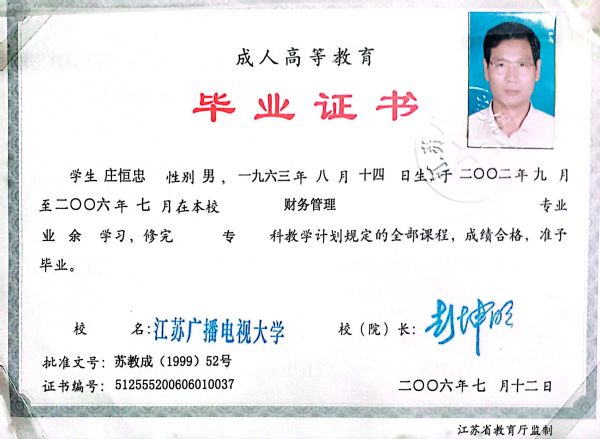 成人高等教育
毕业证书
学生 庄恒忠 性别 男，一九六三年 八 月 十四 日生，于 二〇〇二年 九 月
至二〇〇六年 七 月在本校 财务管理 专业
业 余 学习，修完 专 科教学计划规定的全部课程，成绩合格，准予
毕业。
校 名：江苏广播电视大学 校（院）长：彭坤明
批准文号：苏教成（1999）52号
证书编号：512555200606010037 二〇〇六年 七 月 十二 日
江苏省教育厅监制